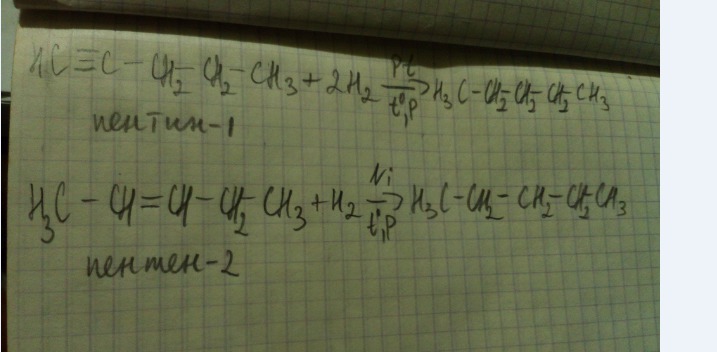 HC≡C-CH₂-CH₂-CH₃+2H₂ Pt→t°,P H₃C-CH₂-CH₂-CH₂-CH₃
пентин-1
H₃C-CH=CH-CH₂-CH₃+H₂ Ni→t°,P H₃C-CH₂-CH₂-CH₂-CH₃
пентен-2